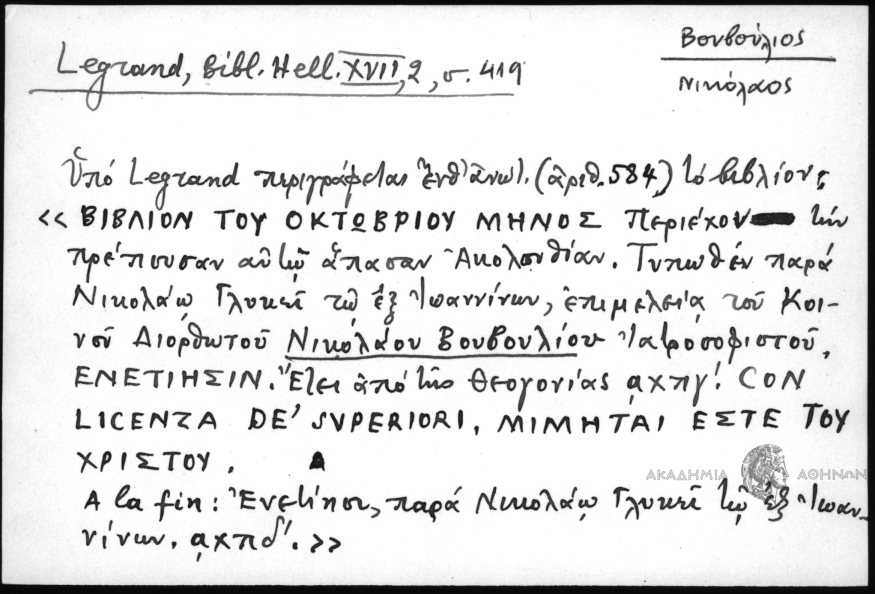 Βουβούλιος
Νικόλαος
Legrand, Bibl. Hell. XVII, 2, σ. 419
Ὑπό Legrand περιγράφεται ἐνθ' ἀνωτ. (ἀριθ. 584) τό βιβλίον:
<< ΒΙΒΛΙΟΝ ΤΟΥ ΟΚΤΩΒΡΙΟΥ ΜΗΝΟΣ Περιέχον τήν
πρέπουσαν αὐτῷ ἅπασαν Ἀκολουθίαν. Τυπωθέν παρά
Νικολάῳ Γλυκεῖ τῷ ἐξ Ἰωαννίνων, ἐπιμελείᾳ τοῦ Κοι-
νοῦ Διορθωτοῦ Νικολάου Βουβουλίου Ἰατροσοφιστοῦ,
ΕΝΕΤΙΗΣΙΝ. Ἔτει ἀπό τῆς θεογονίας αχπγ'. CON
LICENZA DE' SVPERIORI, ΜΙΜΗΤΑΙ ΕΣΤΕ ΤΟΥ
ΧΡΙΣΤΟΥ.
A la fin: Ἐνετίησι, παρά Νικολάῳ Γλυκεῖ τῷ ἐξ Ἰωαν-
νίνων. αχπδ'. >>
ΑΚΑΔΗΜΙΑ ΑΘΗΝΩΝ